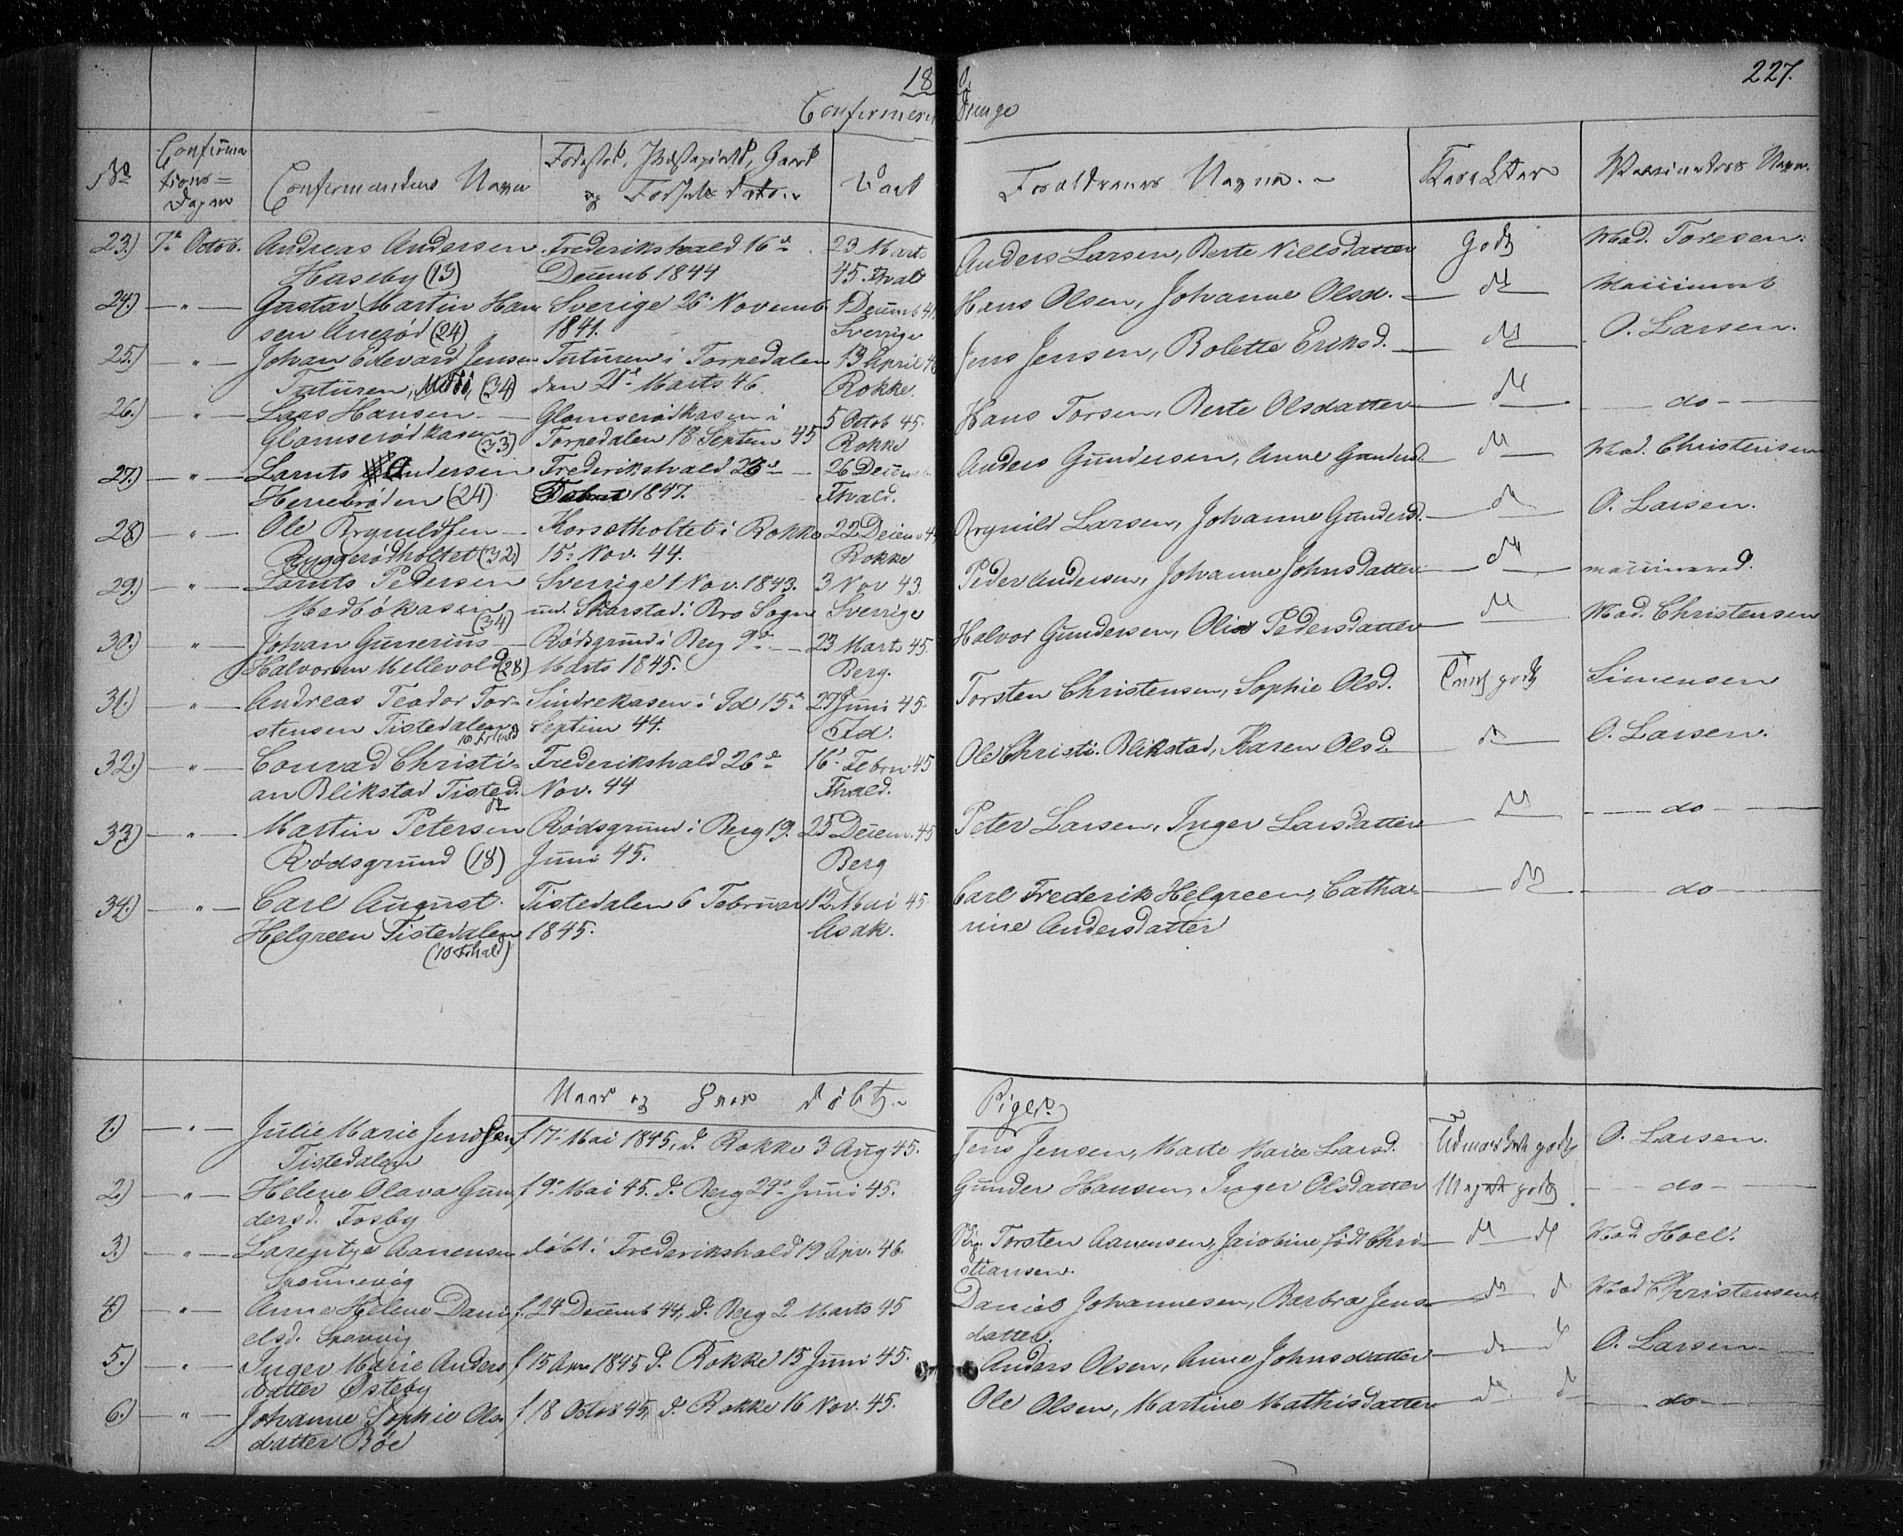 18
227.
Confirmerede Drenge
No
Confirmations=Dagen
Confirmandens Navn
Fødested, Præstegield, Gaard og Fødsels dato.
Vacc
Forældrenes Navne.
Karakter
Vaccinateurs Navn.
23.) 7de Octob. Andreas Andersen Frederikshald 16de 23 Marts Anders Larsen, Berte Nillsdatter Godt Mad. Toresen.
Haseby (19) Decemb 1844 45. Fhald
24.) " Gustav Martin Han Sverige 26 Novemb 1 Decemb 41 Hans Olsen, Johanne Olsd. do
sen (24) 1841. Sverrige
25.) " Johan Edevard Jensen Tuturen i Torpedalen 13 April 46 Jens Jensen, Bolette Eriksd. do O. Larsen.
Tuturen, (34) den 21de Marts 46. Rokke.
26.) " Lars Hansen Glomserødkasen i 5 Octob 45. Hans Torsen, Berte Olsdatter do do
Glomserødkasen (33) Torpedalen 18 Septem 45 Rokke
27.) " Larnts Andersen Frederikshald 23de 26 Decemb Anders Gundersen, Anne Gundersd. do Mad. Christensen
Herrebrøden (24) 1847. Fhald.
28.) " Ole Brynildsen Korsetholtet i Rokke 22 Decem 44 Brynild Larsen, Johanne Gundersd. do O. Larsen.
Byggerødholtet (32) 15. Nov. 44. Rokke
29.) " Larnts Pedersen Sverrige 1 Nov. 1843. 3 Nov 43. Peder Andersen, Johanne Johnsdatter do
Medbøkasen (34) und. Skarstad i Bro Sogn Sverrige
30.) " Johan Gunerius Rødsgrund i Berg 9de 23 Marts 45. Halvor Gundersen, Olia Pedersdatter do Mad. Christensen
Halvorsen Mellevold (28) Marts 1845. Berg.
31.) " Andreas Teodor Tor- Sindrekasen i Id 15de 27 Juni 45. Torsten Christensen, Sophie Olsd. godt Simensen
stensen Tistedalen Septem 44. Id.
32.) " Conrad Christi- Frederikshald 26de 16. Febru 45 Ole Christi. Blikstad, Karen Olsd. do O. Larsen.
an Blikstad Tisted. Nov. 44 Fhald.
33.) " Martin Petersen Rødsgrund i Berg 19. 25 Decem. 45 Peter Larsen, Inger Larsdatter do do
Rødsgrund (18) Juni 45. Berg
34.) " Carl August Tistedalen 6 Februar 12 Mai 45. Carl Frederik Helgreen, Catha- do do
Helgreen Tistedalen 1845. Asak. rine Andersdatter
(10 Fhald)
Naar og Hvor døbt.
Piger
1.) " Julie Marie Jensen, f 17. Mai 1845, d. Rokke 3 Aug 45. Jens Jensen, Marte Marie Larsd. godt O. Larsen.
Tistedalen
2.) " Helene Olava Gun f 9de Mai 45. d. Berg 24de Juni 45. Gunder Hansen, Inger Olsdatter Meget godt do
dersd. Fosby
3.) " Larentze Aanensen døbt i Frederikshald 19 Apr. 46. Torsten Aanensen, Jacobine født Chri- do do Mad. Hoel.
stiansen.
4.) " Anne Helene Dani f. 24 Decemb 44, d. Berg 2 Marts 45 Daniel Johannesen, Barbra Jens- do do Mad Christensen
elsd. datter.
5.) " Inger Marie Anders f 15 Apr 1845 d. Rokke 15 Juni 45. Anders Olsen, Anne Johnsdatter do do O. Larsen
datter Østeby
6.) " Johanne Sophie Ols f 18 Octob 45, d. Rokke 16 Nov. 45. Ole Olsen, Martine Mathisdatter do do do
datter Bøe